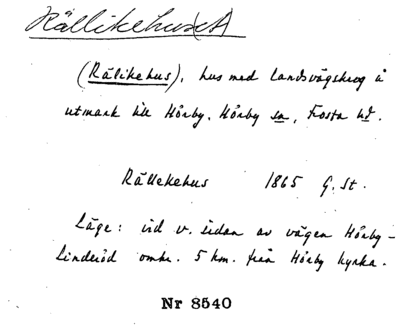 Rällikehus(et)
(Rälikehus), hus med landsvägskrog å
utmark till Hörby. Hörby sn, Frosta hd.
Rällekehus 1865 G. St.
Läge: vid v. sidan av vägen Hörby–
Linderöd omkr. 5 km. från Hörby kyrka.
Nr 8540